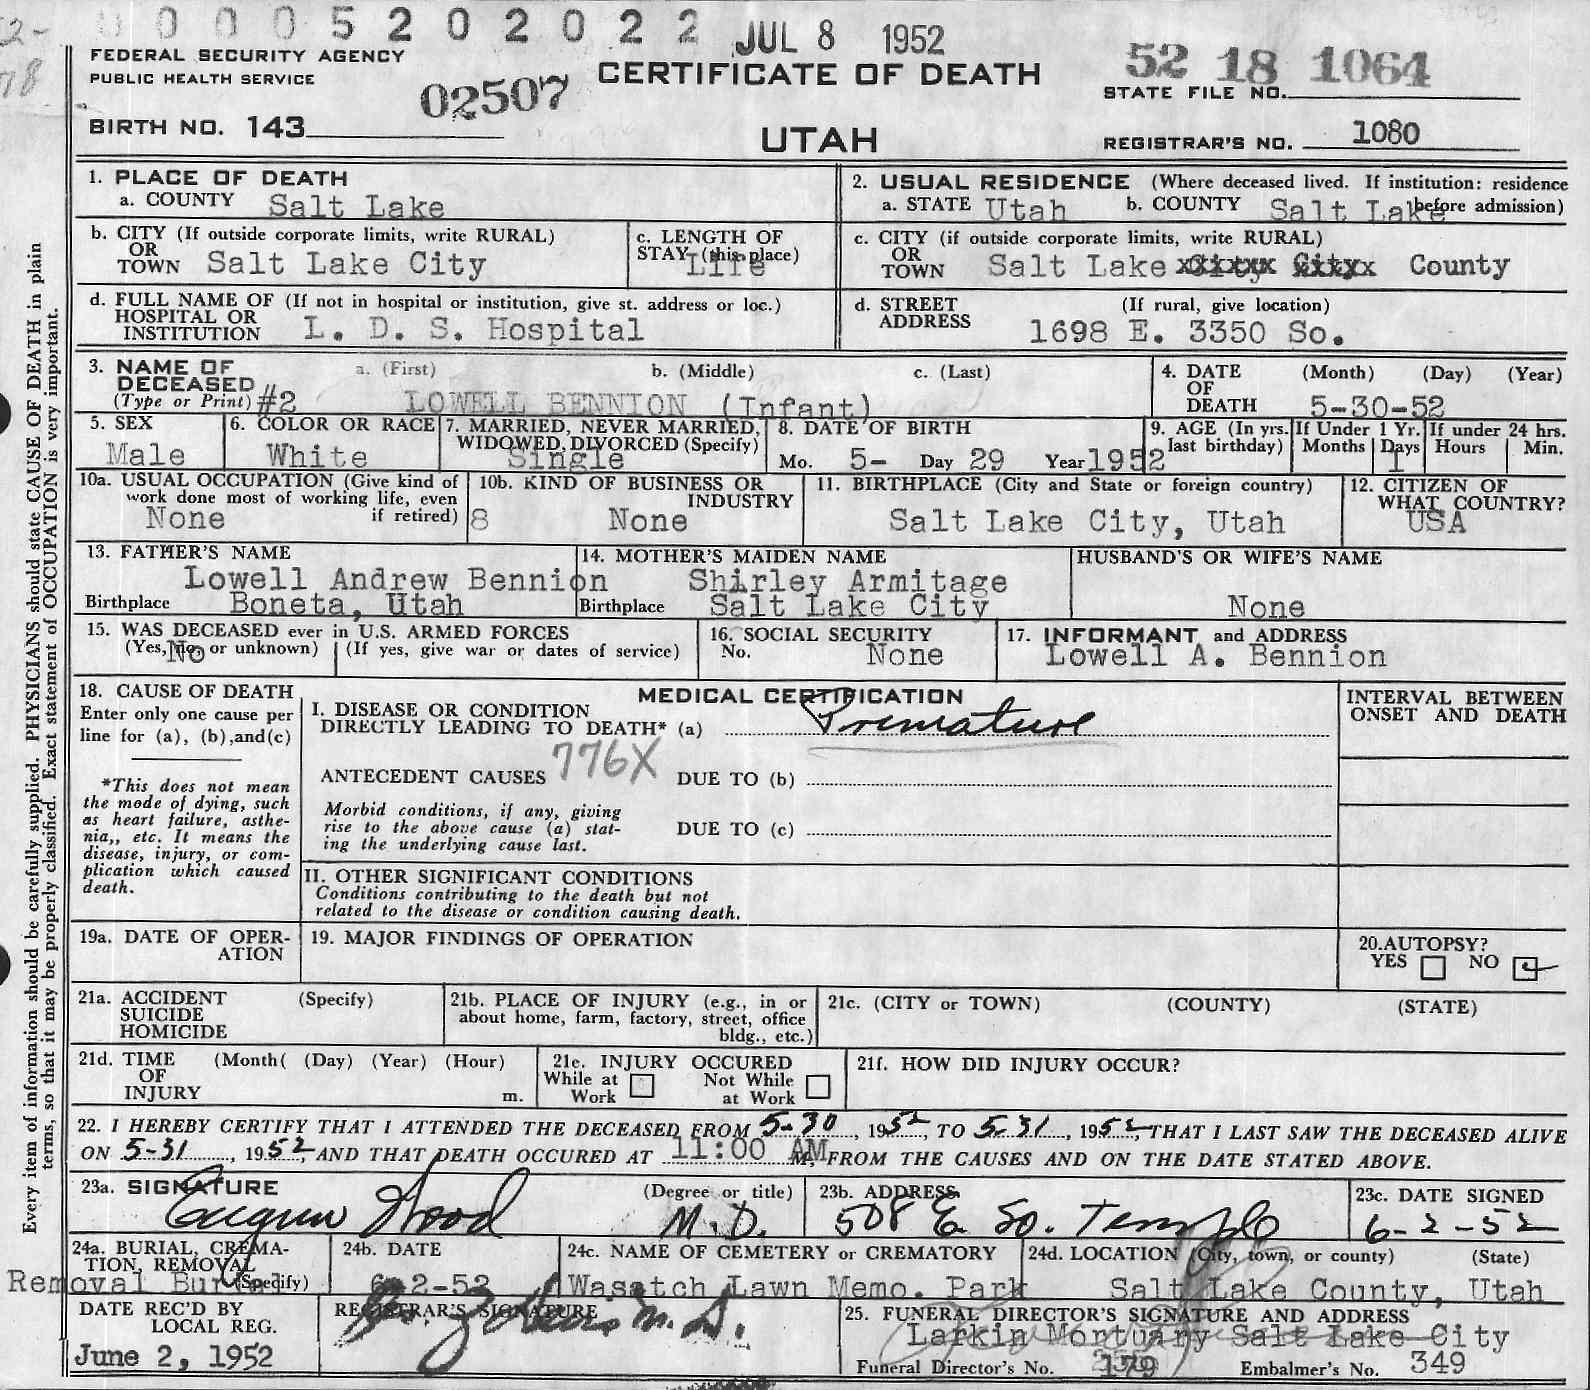 0 0 0 5 2 0 2 0 2 2 JUL 8 1952
FEDERAL SECURITY AGENCY
PUBLIC HEALTH SERVICE
02507
CERTIFICATE OF DEATH
UTAH
52 18 1064
STATE FILE NO.
BIRTH NO. 143
REGISTRAR'S NO. 1080
1. PLACE OF DEATH
a. COUNTY Salt Lake
2. USUAL RESIDENCE (Where deceased lived. If institution: residence before admission)
a. STATE Utah b. COUNTY Salt Lake
b. CITY (If outside corporate limits, write RURAL)
OR
TOWN Salt Lake City
c. LENGTH OF
STAY (this place)
Life
c. CITY (if outside corporate limits, write RURAL)
OR
TOWN Salt Lake County
d. FULL NAME OF (If not in hospital or institution, give st. address or loc.)
HOSPITAL OR
INSTITUTION L. D. S. Hospital
d. STREET (If rural, give location)
ADDRESS 1698 E. 3350 So.
3. NAME OF a. (First) b. (Middle) c. (Last)
DECEASED
(Type or Print) #2 LOWELL BENNION (Infant)
4. DATE (Month) (Day) (Year)
OF
DEATH 5-30-52
5. SEX
Male
6. COLOR OR RACE
White
7. MARRIED, NEVER MARRIED,
WIDOWED, DIVORCED (Specify)
Single
8. DATE OF BIRTH
Mo. 5- Day 29 Year 1952
9. AGE (In yrs. last birthday)
If Under 1 Yr.
Months Days
1
If under 24 hrs.
Hours Min.
10a. USUAL OCCUPATION (Give kind of
work done most of working life, even
if retired)
None
10b. KIND OF BUSINESS OR
INDUSTRY
8 None
11. BIRTHPLACE (City and State or foreign country)
Salt Lake City, Utah
12. CITIZEN OF
WHAT COUNTRY?
USA
13. FATHER'S NAME
Lowell Andrew Bennion
Birthplace Boneta, Utah
14. MOTHER'S MAIDEN NAME
Shirley Armitage
Birthplace Salt Lake City
HUSBAND'S OR WIFE'S NAME
None
15. WAS DECEASED ever in U.S. ARMED FORCES
(Yes, no, or unknown) (If yes, give war or dates of service)
No
16. SOCIAL SECURITY
No. None
17. INFORMANT and ADDRESS
Lowell A. Bennion
18. CAUSE OF DEATH
Enter only one cause per
line for (a), (b), and (c)
*This does not mean
the mode of dying, such
as heart failure, asthe-
nia,, etc. It means the
disease, injury, or com-
plication which caused
death.
MEDICAL CERTIFICATION
I. DISEASE OR CONDITION
DIRECTLY LEADING TO DEATH* (a) Premature
776X
ANTECEDENT CAUSES DUE TO (b)
Morbid conditions, if any, giving
rise to the above cause (a) stat-
ing the underlying cause last.
DUE TO (c)
II. OTHER SIGNIFICANT CONDITIONS
Conditions contributing to the death but not
related to the disease or condition causing death.
INTERVAL BETWEEN
ONSET AND DEATH
19a. DATE OF OPER-
ATION
19. MAJOR FINDINGS OF OPERATION
20. AUTOPSY?
YES NO
21a. ACCIDENT (Specify)
SUICIDE
HOMICIDE
21b. PLACE OF INJURY (e.g., in or
about home, farm, factory, street, office
bldg., etc.)
21c. (CITY or TOWN) (COUNTY) (STATE)
21d. TIME (Month( (Day) (Year) (Hour)
OF
INJURY m.
21e. INJURY OCCURED
While at Work Not While at Work
21f. HOW DID INJURY OCCUR?
22. I HEREBY CERTIFY THAT I ATTENDED THE DECEASED FROM 5-30, 1952, TO 5-31, 1952, THAT I LAST SAW THE DECEASED ALIVE
ON 5-31, 1952, AND THAT DEATH OCCURED AT 11:00 AM M, FROM THE CAUSES AND ON THE DATE STATED ABOVE.
23a. SIGNATURE (Degree or title)
Wood M.D.
23b. ADDRESS
508 E. So. Temple
23c. DATE SIGNED
6-2-52
24a. BURIAL, CREMA-
TION, REMOVAL
(Specify)
Removal Burial
24b. DATE
6-2-52
24c. NAME OF CEMETERY or CREMATORY
Wasatch Lawn Memo. Park
24d. LOCATION (City, town, or county) (State)
Salt Lake County, Utah
DATE REC'D BY
LOCAL REG.
June 2, 1952
REGISTRAR'S SIGNATURE
M.D.
25. FUNERAL DIRECTOR'S SIGNATURE AND ADDRESS
Larkin Mortuary Salt Lake City
Funeral Director's No. 179 Embalmer's No. 349
Every item of information should be carefully supplied. PHYSICIANS should state CAUSE OF DEATH in plain
terms, so that it may be properly classified. Exact statement of OCCUPATION is very important.